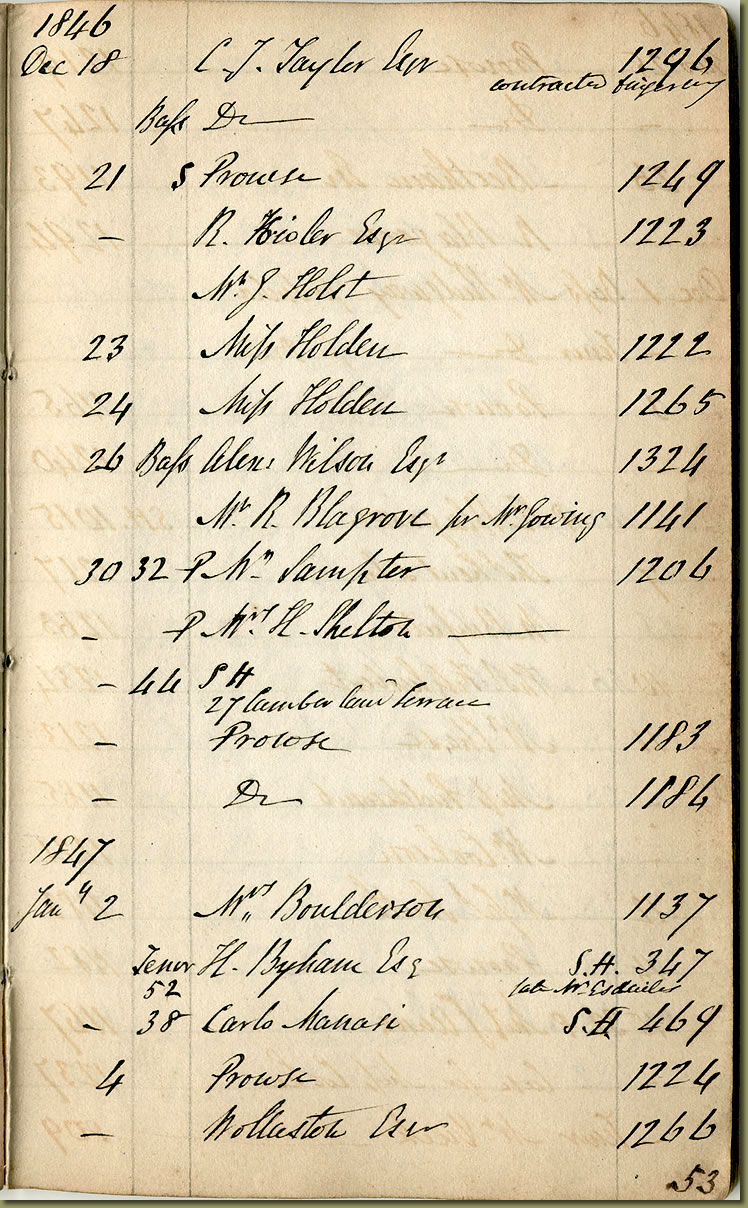 1846
Dec 18 C. J. Taylor Esqr 1296
contracted fingering
Bass Do
21 S Prowse 1249
– R. Hisler Esqr 1223
Mr J. Holst
23 Miss Holden 1222
24 Miss Holden 1265
26 Bass Alexr Wilson Esqr 1324
Mr R. Blagrove pr Mr Gowing 1141
30 32 P Mr Sampter 1206
– P Mrs H. Shelton ———
– 44 S H
27 Cumberland Terrace
– Prowse 1183
– Do 1186
1847
Jany 2 Mrs Boulderson 1137
Tenor H. Byham Esq S.H. 347
52 late Mr
– 38 Carlo Manasi S.H 469
4 Prowse 1224
– Wollaston Esqr 1266
53